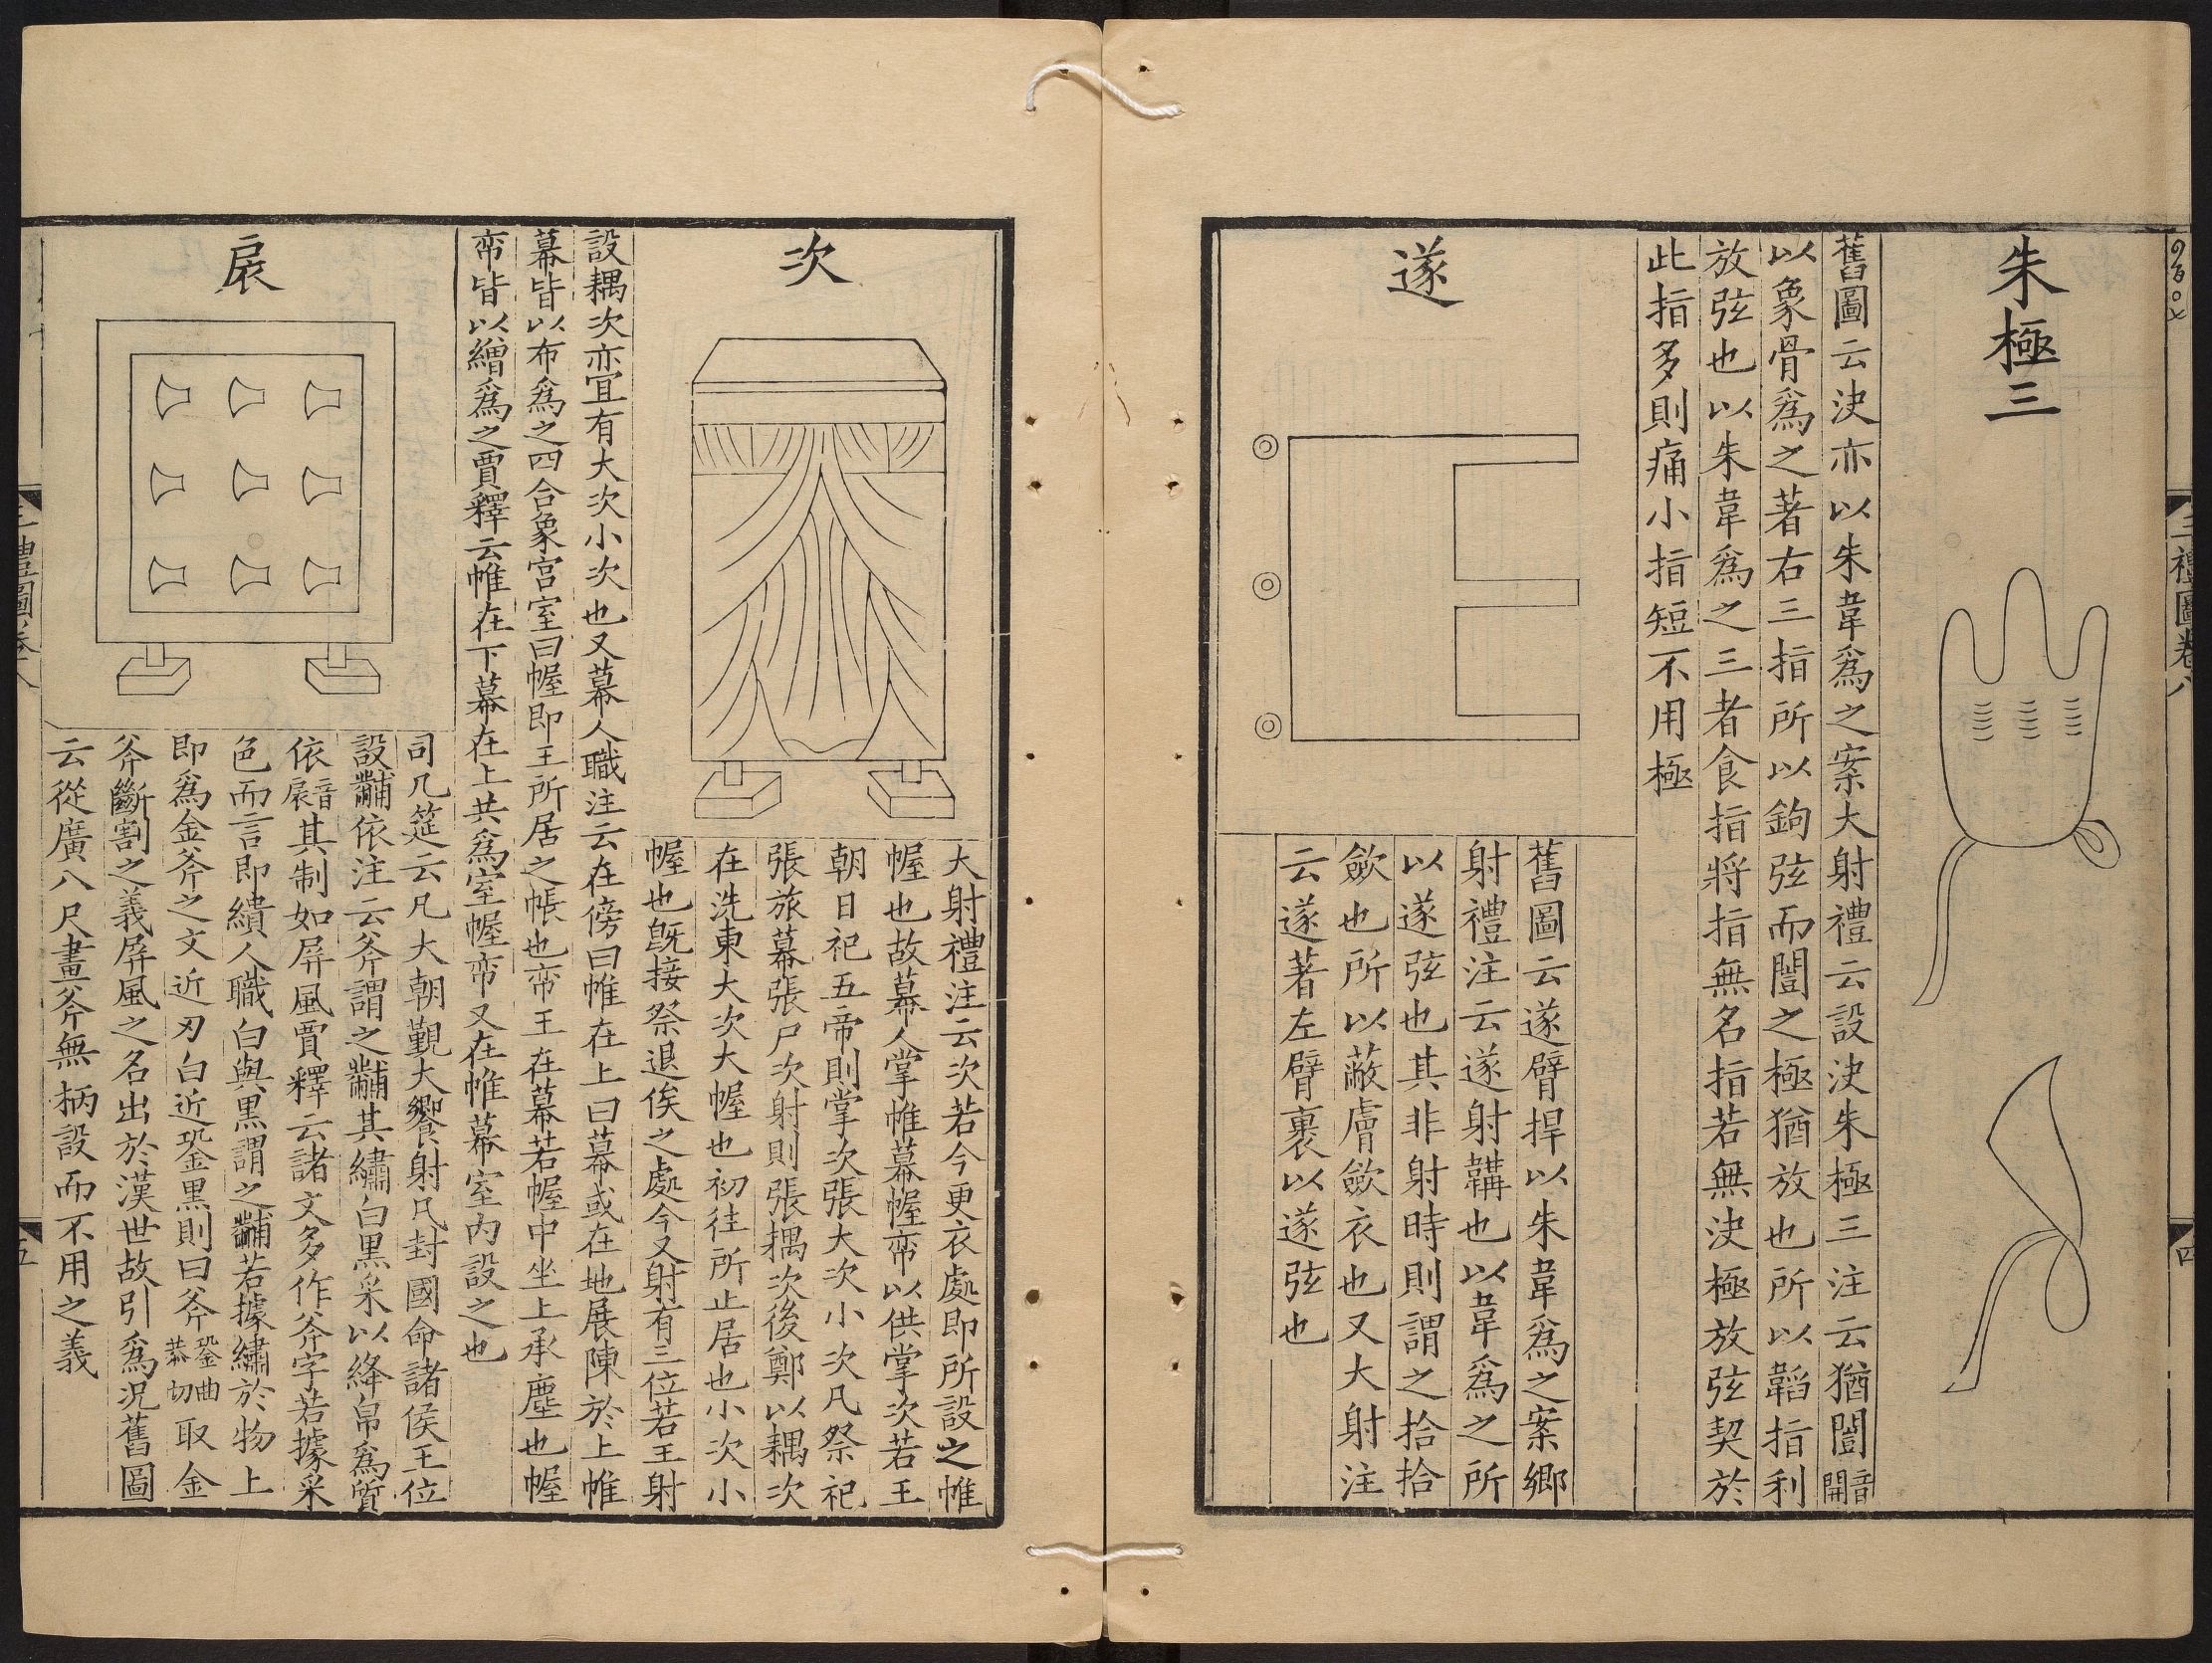 三禮圖卷八
四
朱極三
舊圖云決亦以朱韋爲之案大射禮云設決朱極三注云猶闓音開
以象骨爲之著右三指所以鉤弦而闓之極猶放也所以韜指利
放弦也以朱韋爲之三者食指將指無名指若無決極放弦契於
此指多則痛小指短不用極
遂
舊圖云遂臂捍以朱韋爲之案鄉
射禮注云遂射韝也以韋爲之所
以遂弦也其非射時則謂之拾拾
斂也所以蔽膚斂衣也又大射注
云遂著左臂裏以遂弦也
次
大射禮注云次若今更衣處即所設之帷
幄也故幕人掌帷幕幄帟以供掌次若王
朝日祀五帝則掌次張大次小次凡祭祀
張旅幕張尸次射則張耦次後鄭以耦次
在洗東大次大幄也初往所止居也小次小
幄也旣接祭退俟之處今又射有三位若王射
設耦次亦宜有大次小次也又幕人職注云在傍曰帷在上曰幕或在地展陳於上帷
幕皆以布爲之四合象宮室曰幄即王所居之帳也帟王在幕若幄中坐上承塵也幄
帟皆以繒爲之賈釋云帷在下幕在上共爲室幄帟又在帷幕室內設之也
扆
司几筵云凡大朝覲大饗射凡封國命諸侯王位
設黼依注云斧謂之黼其繡白黑采以絳帛爲質
依音扆其制如屏風賈釋云諸文多作斧字若據采
色而言即繢人職白與黑謂之黼若據繡於物上
即爲金斧之文近刃白近銎黑則曰斧銎曲恭切取金
斧斷割之義屏風之名出於漢世故引爲况舊圖
云從廣八尺畫斧無柄設而不用之義
五